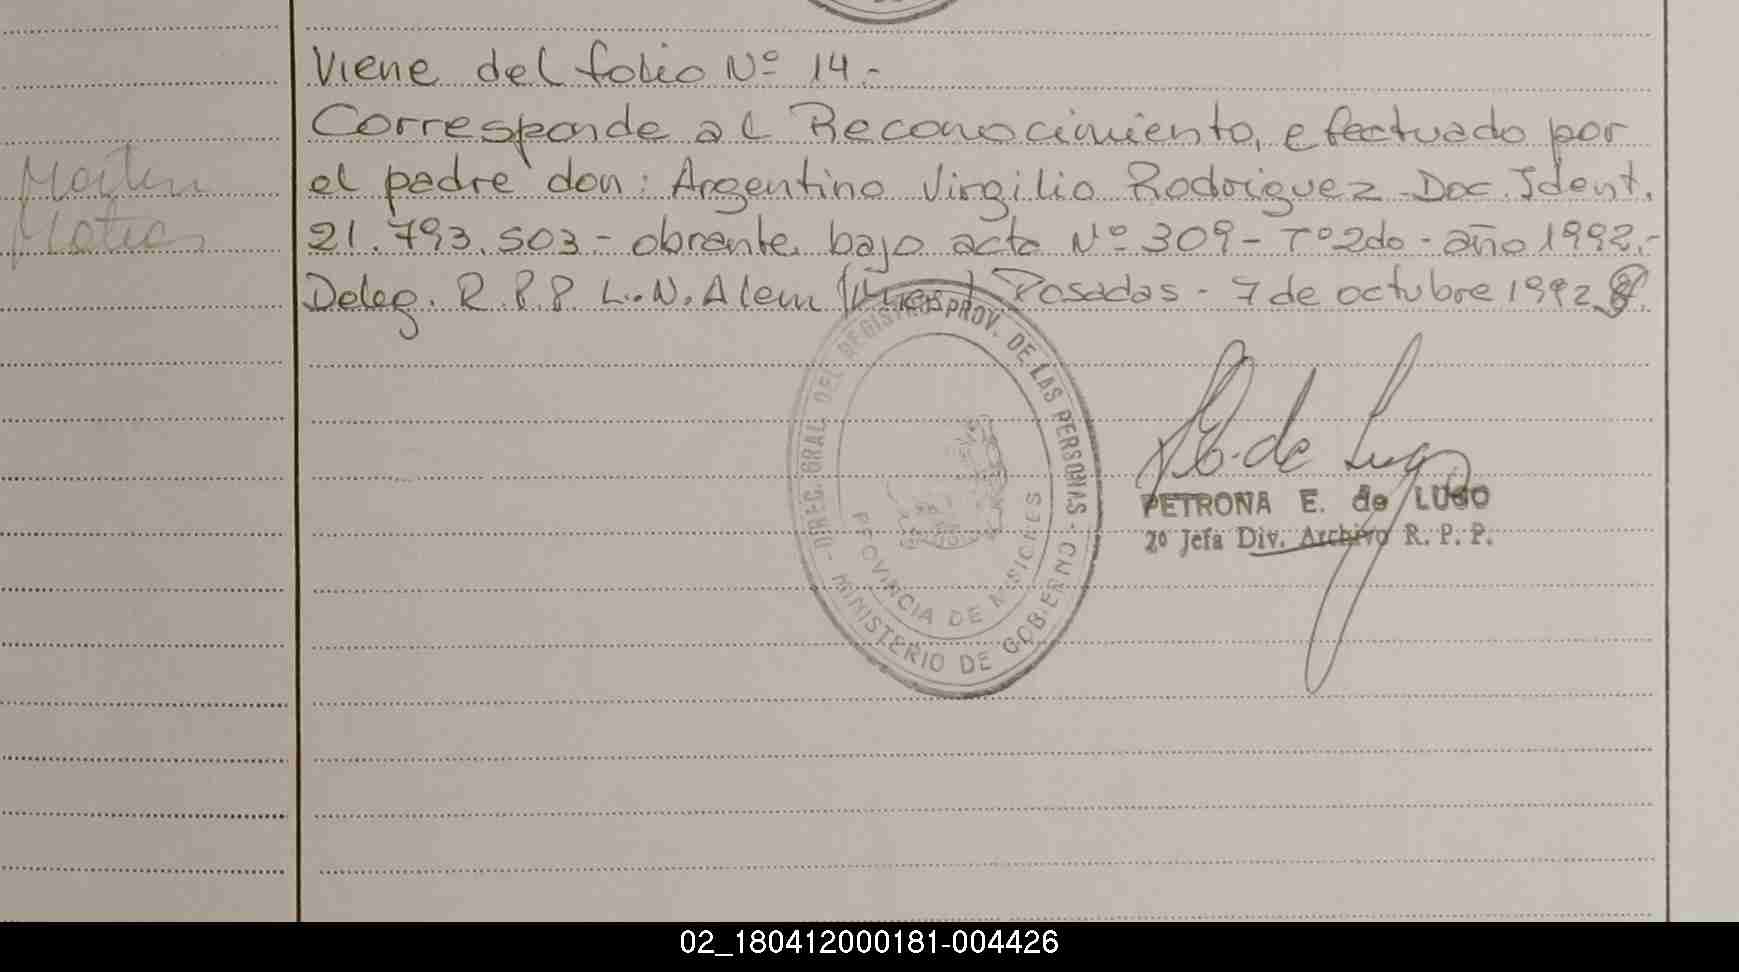 Viene del folio Nº 14.-
Corresponde al Reconocimiento, efectuado por
el padre don: Argentino Virgilio Rodriguez Doc. Ident.
21.793.503 - obrante bajo acta Nº 309 - Tº 2do - año 1992.-
Deleg. R.P.P. L.N. Alem (Mnes) Posadas - 7 de octubre 1992
Martin
Matias
DIREC. GRAL. DEL REGISTRO PROV. DE LAS PERSONAS - MINISTERIO DE GOBIERNO
PROVINCIA DE MISIONES
E. de Lugo
PETRONA E. de LUGO
2º Jefa Div. Archivo R. P. P.
02_180412000181-004426